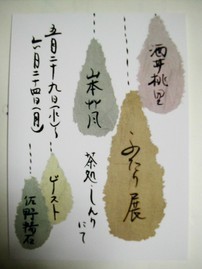 酒井桃里
ふたり展
山本草凪
茶処・しんりにて
五月二十九日(水)〜
六月二十四日(月)
ゲスト